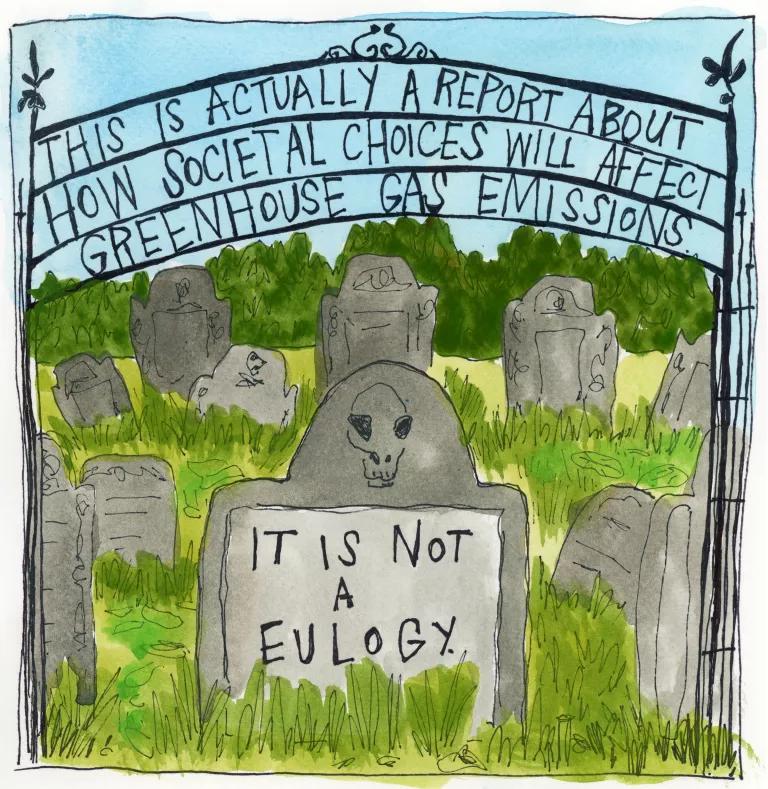 THIS IS ACTUALLY A REPORT ABOUT
HOW SOCIETAL CHOICES WILL AFFECT
GREENHOUSE GAS EMISSIONS.
IT IS NOT
A
EULOGY.